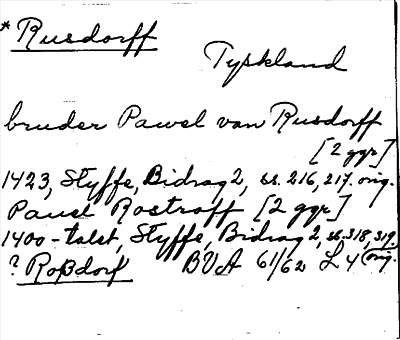 * Rusdorff
Tyskland
bruder Pawel van Rusdorff
[2 ggr]
1423, Styffe, Bidrag 2, ss. 216, 217. orig.
Pauel Rostroff [2 ggr]
1400-talet, Styffe, Bidrag 2, ss. 318, 319. orig.
? Roßdorf BVA 61/62 L 4